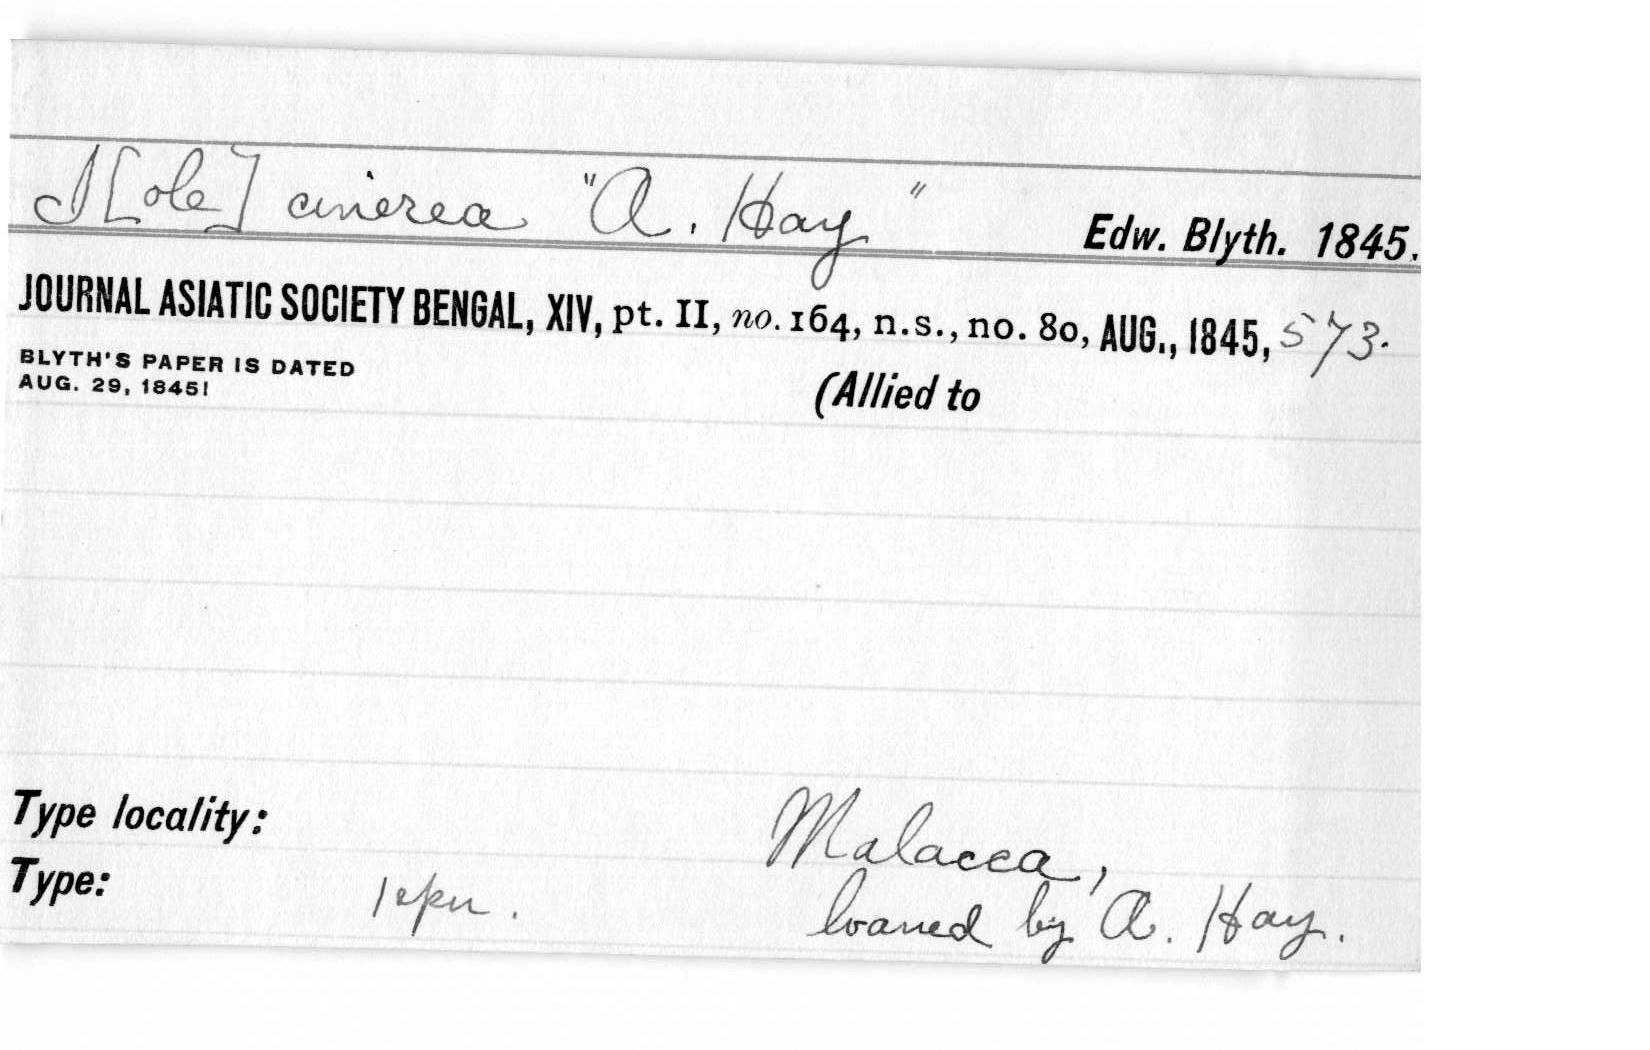 I[ole] cinerea "A. Hay" Edw. Blyth. 1845.
JOURNAL ASIATIC SOCIETY BENGAL, XIV, pt. II, no. 164, n.s., no. 80, AUG., 1845, 573.
BLYTH'S PAPER IS DATED
AUG. 29, 1845!
(Allied to
Type locality: Malacca,
Type: 1 spn. loaned by A. Hay.